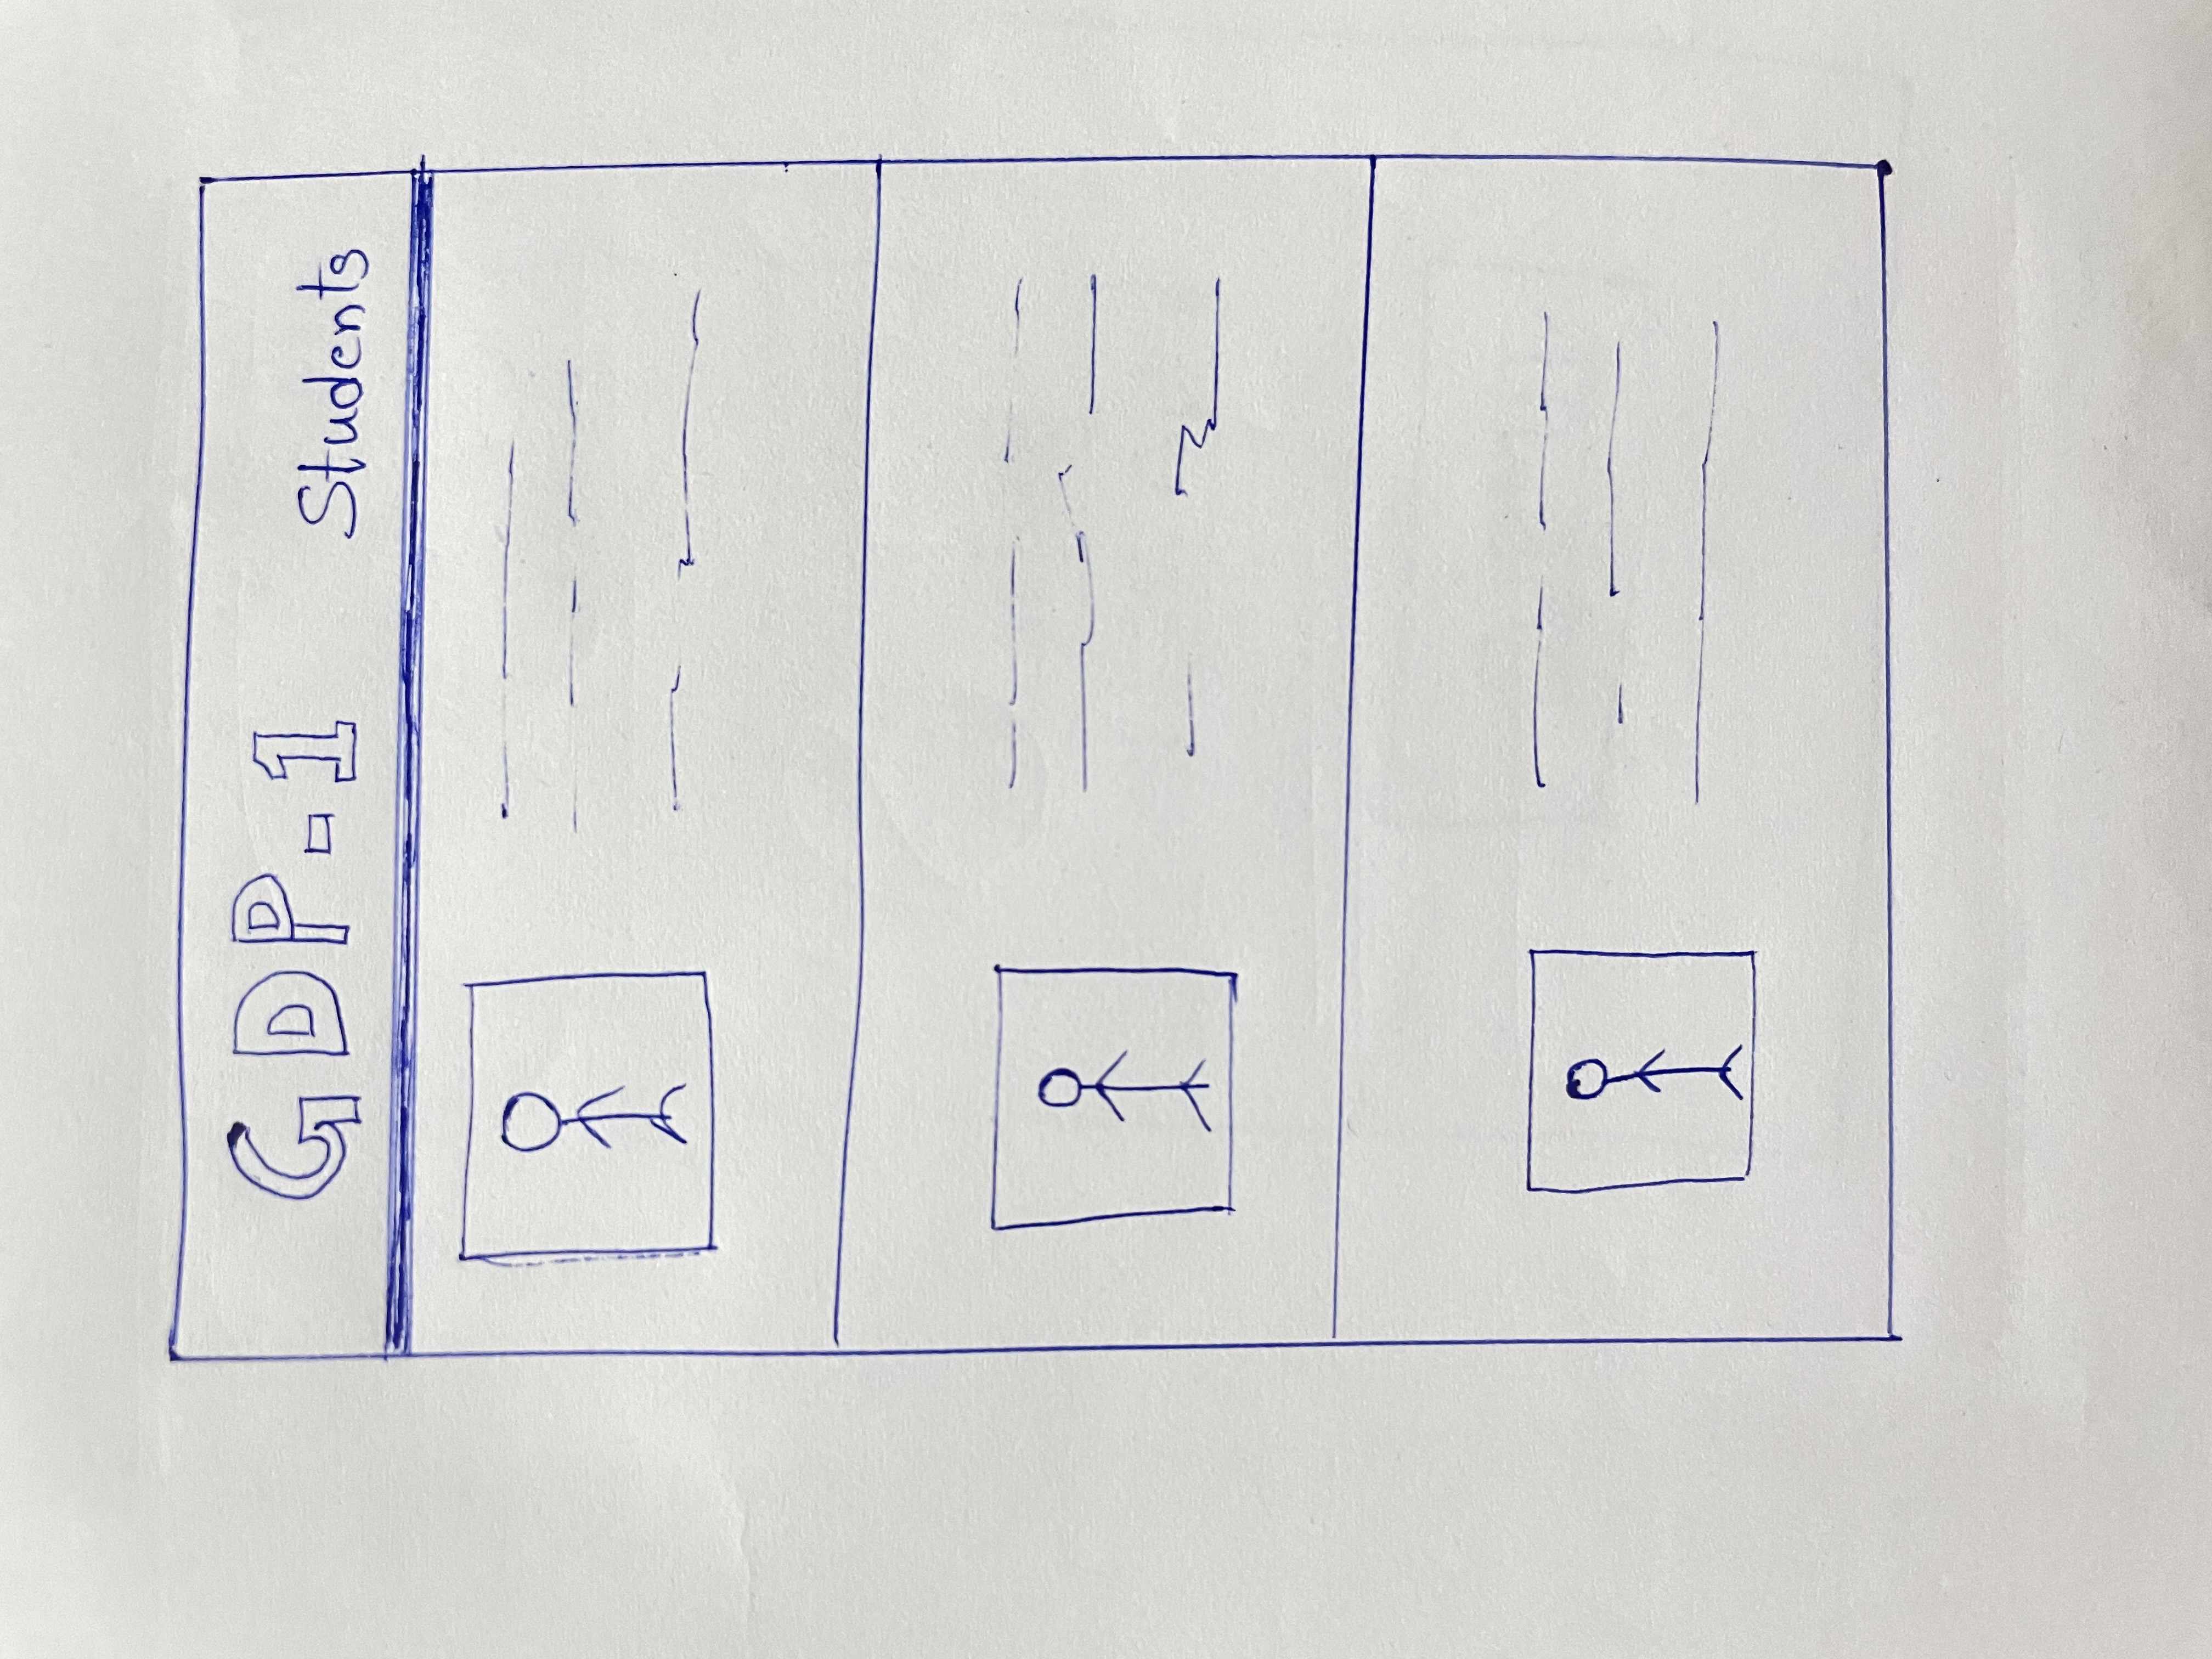 GDP-1 Students